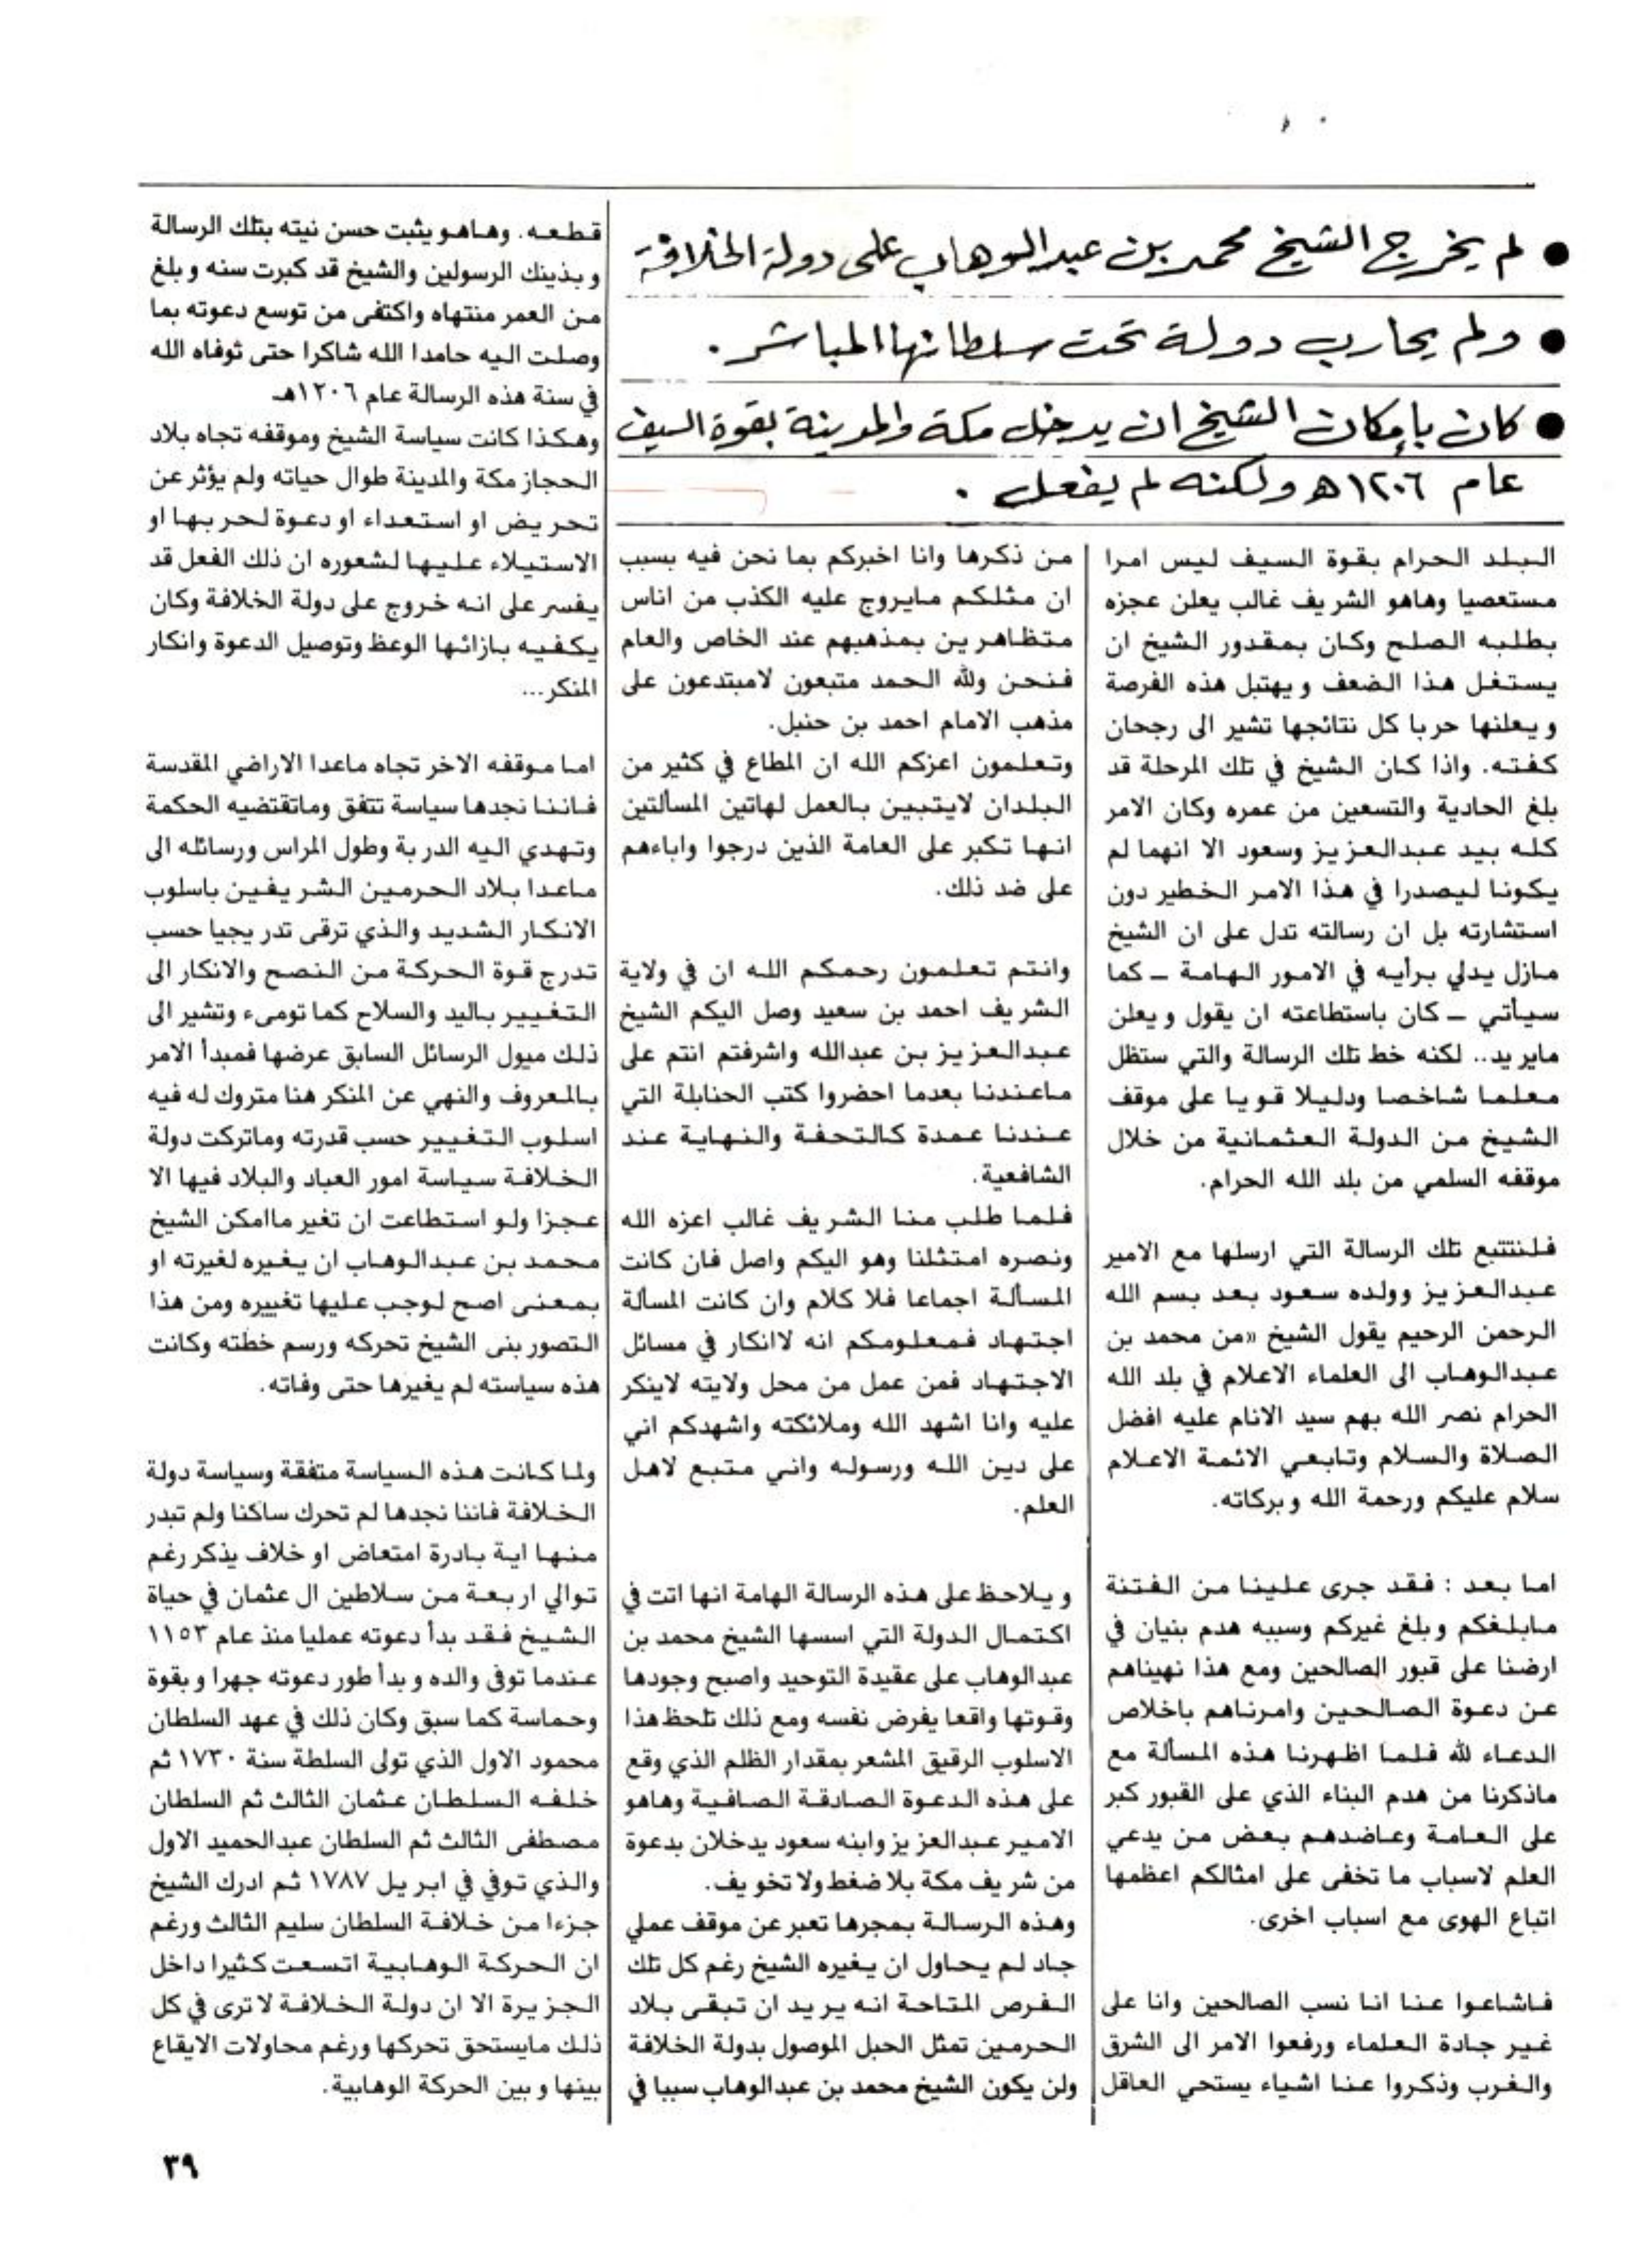 ● لم يخرج الشيخ محمد بن عبدالوهاب على دولة الخلافة
● ولم يحارب دولة تحت سلطانها المباشر .
● كان بإمكان الشيخ ان يدخل مكة والمدينة بقوة السيف
عام ١٢٠٦ هـ ولكنه لم يفعل .
البلد الحرام بقوة السيف ليس امرا
مستعصيا وهاهو الشريف غالب يعلن عجزه
بطلبه الصلح وكان بمقدور الشيخ ان
يستغل هذا الضعف ويهتبل هذه الفرصة
ويعلنها حربا كل نتائجها تشير الى رجحان
كفته. واذا كان الشيخ في تلك المرحلة قد
بلغ الحادية والتسعين من عمره وكان الامر
كله بيد عبدالعزيز وسعود الا انهما لم
يكونا ليصدرا في هذا الامر الخطير دون
استشارته بل ان رسالته تدل على ان الشيخ
مازل يدلي برأيه في الامور الهامة ــ كما
سيأتي ــ كان باستطاعته ان يقول ويعلن
مايريد.. لكنه خط تلك الرسالة والتي ستظل
معلما شاخصا ودليلا قويا على موقف
الشيخ من الدولة العثمانية من خلال
موقفه السلمي من بلد الله الحرام.
فلنتتبع تلك الرسالة التي ارسلها مع الامير
عبدالعزيز وولده سعود بعد بسم الله
الرحمن الرحيم يقول الشيخ «من محمد بن
عبدالوهاب الى العلماء الاعلام في بلد الله
الحرام نصر الله بهم سيد الانام عليه افضل
الصلاة والسلام وتابعي الائمة الاعلام
سلام عليكم ورحمة الله وبركاته.
اما بعد : فقد جرى علينا من الفتنة
مابلغكم وبلغ غيركم وسببه هدم بنيان في
ارضنا على قبور الصالحين ومع هذا نهيناهم
عن دعوة الصالحين وامرناهم باخلاص
الدعاء لله فلما اظهرنا هذه المسألة مع
ماذكرنا من هدم البناء الذي على القبور كبر
على العامة وعاضدهم بعض من يدعي
العلم لاسباب ما تخفى على امثالكم اعظمها
اتباع الهوى مع اسباب اخرى.
فاشاعوا عنا انا نسب الصالحين وانا على
غير جادة العلماء ورفعوا الامر الى الشرق
والغرب وذكروا عنا اشياء يستحي العاقل
من ذكرها وانا اخبركم بما نحن فيه بسبب
ان مثلكم مايروج عليه الكذب من اناس
متظاهرين بمذهبهم عند الخاص والعام
فنحن ولله الحمد متبعون لامبتدعون على
مذهب الامام احمد بن حنبل.
وتعلمون اعزكم الله ان المطاع في كثير من
البلدان لايتبين بالعمل لهاتين المسألتين
انها تكبر على العامة الذين درجوا واباءهم
على ضد ذلك.
وانتم تعلمون رحمكم الله ان في ولاية
الشريف احمد بن سعيد وصل اليكم الشيخ
عبدالعزيز بن عبدالله واشرفتم انتم على
ماعندنا بعدما احضروا كتب الحنابلة التي
عندنا عمدة كالتحفة والنهاية عند
الشافعية.
فلما طلب منا الشريف غالب اعزه الله
ونصره امتثلنا وهو اليكم واصل فان كانت
المسألة اجماعا فلا كلام وان كانت المسألة
اجتهاد فمعلومكم انه لاانكار في مسائل
الاجتهاد فمن عمل من محل ولايته لاينكر
عليه وانا اشهد الله وملائكته واشهدكم اني
على دين الله ورسوله واني متبع لاهل
العلم.
ويلاحظ على هذه الرسالة الهامة انها اتت في
اكتمال الدولة التي اسسها الشيخ محمد بن
عبدالوهاب على عقيدة التوحيد واصبح وجودها
وقوتها واقعا يفرض نفسه ومع ذلك تلحظ هذا
الاسلوب الرقيق المشعر بمقدار الظلم الذي وقع
على هذه الدعوة الصادقة الصافية وهاهو
الامير عبدالعزيز وابنه سعود يدخلان بدعوة
من شريف مكة بلا ضغط ولا تخويف.
وهذه الرسالة بمجرها تعبر عن موقف عملي
جاد لم يحاول ان يغيره الشيخ رغم كل تلك
الفرص المتاحة انه يريد ان تبقى بلاد
الحرمين تمثل الحبل الموصول بدولة الخلافة
ولن يكون الشيخ محمد بن عبدالوهاب سببا في
قطعه. وهاهو يثبت حسن نيته بتلك الرسالة
وبذينك الرسولين والشيخ قد كبرت سنه وبلغ
من العمر منتهاه واكتفى من توسع دعوته بما
وصلت اليه حامدا الله شاكرا حتى توفاه الله
في سنة هذه الرسالة عام ١٢٠٦هـ
وهكذا كانت سياسة الشيخ وموقفه تجاه بلاد
الحجاز مكة والمدينة طوال حياته ولم يؤثر عن
تحريض او استعداء او دعوة لحربها او
الاستيلاء عليها لشعوره ان ذلك الفعل قد
يفسر على انه خروج على دولة الخلافة وكان
يكفيه بازائها الوعظ وتوصيل الدعوة وانكار
المنكر...
اما موقفه الاخر تجاه ماعدا الاراضي المقدسة
فاننا نجدها سياسة تتفق وماتقتضيه الحكمة
وتهدي اليه الدربة وطول المراس ورسائله الى
ماعدا بلاد الحرمين الشريفين باسلوب
الانكار الشديد والذي ترقى تدريجيا حسب
تدرج قوة الحركة من النصح والانكار الى
التغيير باليد والسلاح كما تومىء وتشير الى
ذلك ميول الرسائل السابق عرضها فمبدأ الامر
بالمعروف والنهي عن المنكر هنا متروك له فيه
اسلوب التغيير حسب قدرته وماتركت دولة
الخلافة سياسة امور العباد والبلاد فيها الا
عجزا ولو استطاعت ان تغير ماامكن الشيخ
محمد بن عبدالوهاب ان يغيره لغيرته او
بمعنى اصح لوجب عليها تغييره ومن هذا
التصور بنى الشيخ تحركه ورسم خطته وكانت
هذه سياسته لم يغيرها حتى وفاته.
ولما كانت هذه السياسة متفقة وسياسة دولة
الخلافة فاننا نجدها لم تحرك ساكنا ولم تبدر
منها اية بادرة امتعاض او خلاف يذكر رغم
توالي اربعة من سلاطين ال عثمان في حياة
الشيخ فقد بدأ دعوته عمليا منذ عام ١١٥٣
عندما توفى والده وبدأ طور دعوته جهرا وبقوة
وحماسة كما سبق وكان ذلك في عهد السلطان
محمود الاول الذي تولى السلطة سنة ١٧٣٠ ثم
خلفه السلطان عثمان الثالث ثم السلطان
مصطفى الثالث ثم السلطان عبدالحميد الاول
والذي توفي في ابريل ١٧٨٧ ثم ادرك الشيخ
جزءا من خلافة السلطان سليم الثالث ورغم
ان الحركة الوهابية اتسعت كثيرا داخل
الجزيرة الا ان دولة الخلافة لا ترى في كل
ذلك مايستحق تحركها ورغم محاولات الايقاع
بينها وبين الحركة الوهابية.
٣٩